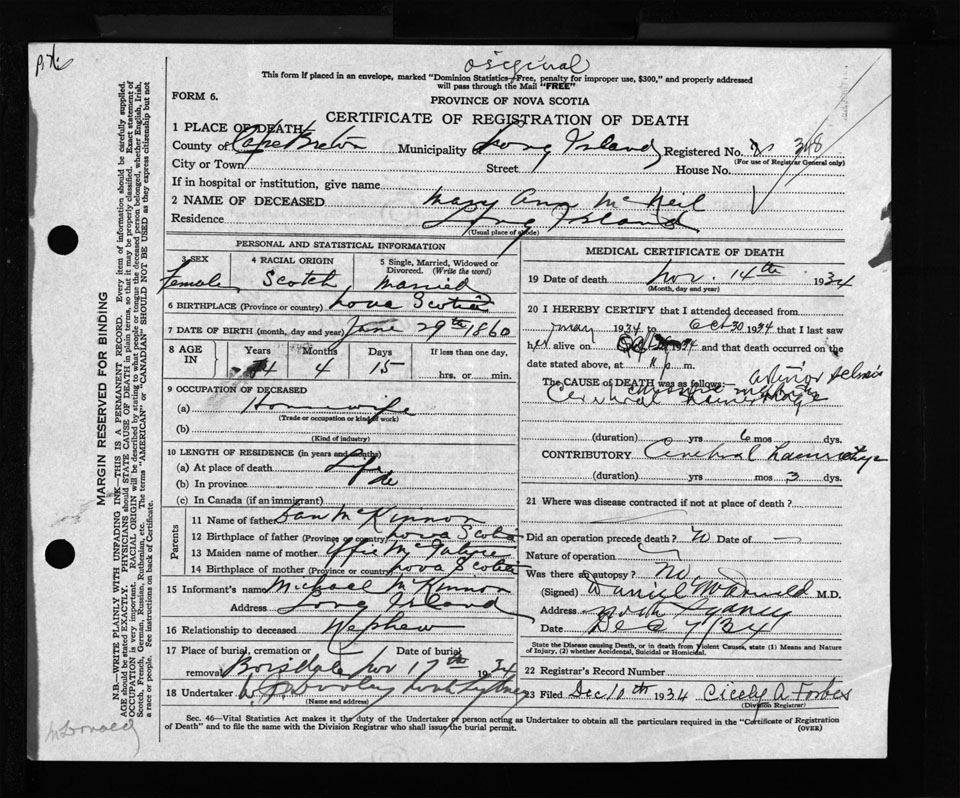 original
This form if placed in an envelope, marked "Dominion Statistics—Free, penalty for improper use, $300," and properly addressed
will pass through the Mail "FREE"
FORM 6.
PROVINCE OF NOVA SCOTIA
CERTIFICATE OF REGISTRATION OF DEATH
1 PLACE OF DEATH
County of Cape Breton Municipality Long Island Registered No. 348
(For use of Registrar General only)
City or Town Street House No.
If in hospital or institution, give name
2 NAME OF DECEASED Mary Ann McNeil
Residence Long Island
(Usual place of abode)
PERSONAL AND STATISTICAL INFORMATION
3 SEX 4 RACIAL ORIGIN 5 Single, Married, Widowed or Divorced. (Write the word)
Female Scotch Married
6 BIRTHPLACE (Province or country) Nova Scotia
7 DATE OF BIRTH (month, day and year) June 29th 1860
8 AGE IN Years Months Days If less than one day,
74 4 15 hrs. or min.
9 OCCUPATION OF DECEASED
(a) Housewife
(Trade or occupation or kind of work)
(b)
(Kind of industry)
10 LENGTH OF RESIDENCE (in years and months)
(a) At place of death Life
(b) In province
(c) In Canada (if an immigrant)
Parents
11 Name of father Dan McKinnon
12 Birthplace of father (Province or country) Nova Scotia
13 Maiden name of mother Effie
14 Birthplace of mother (Province or country) Nova Scotia
15 Informant's name Michael McKinnon
Address Long Island
16 Relationship to deceased Nephew
17 Place of burial, cremation or removal Date of burial
Boisdale Nov 17th 1934
18 Undertaker
(Name and address)
MEDICAL CERTIFICATE OF DEATH
19 Date of death Nov. 14th 1934
(Month, day and year)
20 I HEREBY CERTIFY that I attended deceased from
May 1934 to Oct 30 1934 that I last saw
her alive on 1934 and that death occurred on the
date stated above, at p m.
The CAUSE of DEATH was as follows:
Cerebral
(duration) yrs 6 mos dys.
CONTRIBUTORY Cerebral
(duration) yrs mos 3 dys.
21 Where was disease contracted if not at place of death?
Did an operation precede death? No Date of
Nature of operation
Was there an autopsy? No
(Signed) Daniel McDonald M.D.
Address North Sydney
Date Dec 7/34
State the Disease causing Death, or in death from Violent Causes, state (1) Means and Nature
of Injury, (2) whether Accidental, Suicidal or Homicidal.
22 Registrar's Record Number
23 Filed Dec 10th 1934 Cicely A Forbes
(Division Registrar)
Sec. 46—Vital Statistics Act makes it the duty of the Undertaker or person acting as Undertaker to obtain all the particulars required in the "Certificate of Registration
of Death" and to file the same with the Division Registrar who shall issue the burial permit. (OVER)
MARGIN RESERVED FOR BINDING
N.B.—WRITE PLAINLY WITH UNFADING INK—THIS IS A PERMANENT RECORD. Every item of information should be carefully supplied.
AGE should be stated EXACTLY. PHYSICIANS should STATE CAUSE OF DEATH in plain terms, so that it may be properly classified. Exact statement of
OCCUPATION is very important. RACIAL ORIGIN will be described by stating to what people or tongue the deceased person belonged, whether English, Irish,
Scotch, French, German, Russian, Ruthenian, etc. The terms "AMERICAN" or "CANADIAN" SHOULD NOT BE USED as they express citizenship but not
a race or people. See instructions on back of Certificate.
McDonald